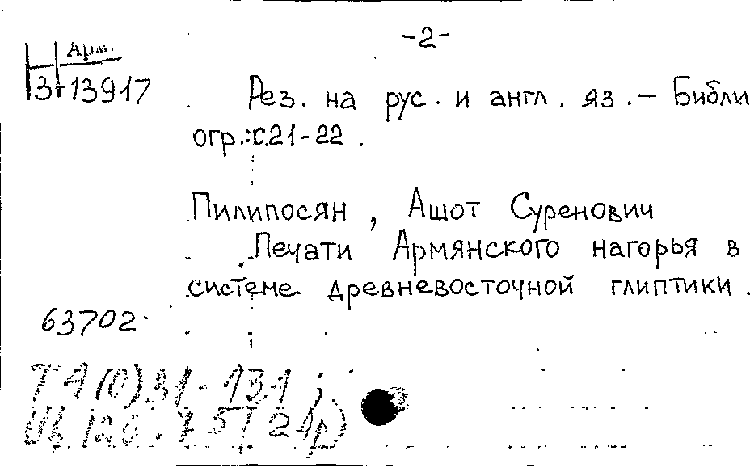 -2-
Арм.
3-13917
Рез. на рус. и англ. яз. - Библи
огр.: с.21-22.
Пилипосян, Ашот Суренович
Печати Армянского нагорья в
системе древневосточной глиптики.
63702